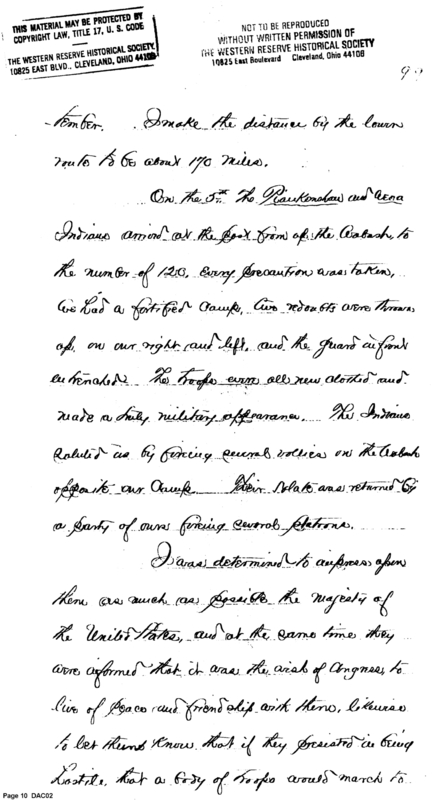 THIS MATERIAL MAY BE PROTECTED BY
COPYRIGHT LAW, TITLE 17, U. S. CODE
THE WESTERN RESERVE HISTORICAL SOCIETY
10825 EAST BLVD., CLEVELAND, OHIO 44106
NOT TO BE REPRODUCED
WITHOUT WRITTEN PERMISSION OF
THE WESTERN RESERVE HISTORICAL SOCIETY
10825 East Boulevard Cleveland, Ohio 44106
tember. I make the distance by the lower
route to be about 170 miles.
On the 5th the Piankenshaw and
Indians arrived at the post from up the Wabash, to
the number of 120. Every precaution was taken,
we had a fortified Camp, two redoubts were thrown
up on our right and left, and the guard in front
entrenched. The troops were all new clothed and
made a truly military appearance. The Indians
saluted us by firing several vollies on the Wabash
opposite our Camp. Their salute was returned by
a party of ours firing several platoons.
I was determined to impress upon
them as much as possible the majesty of
the United States, and at the same time they
were informed that it was the wish of Congress, to
live of peace and friendship with them, likewise
to let them know that if they persisted in being
hostile, that a body of troops would march to
Page 10 DAC02